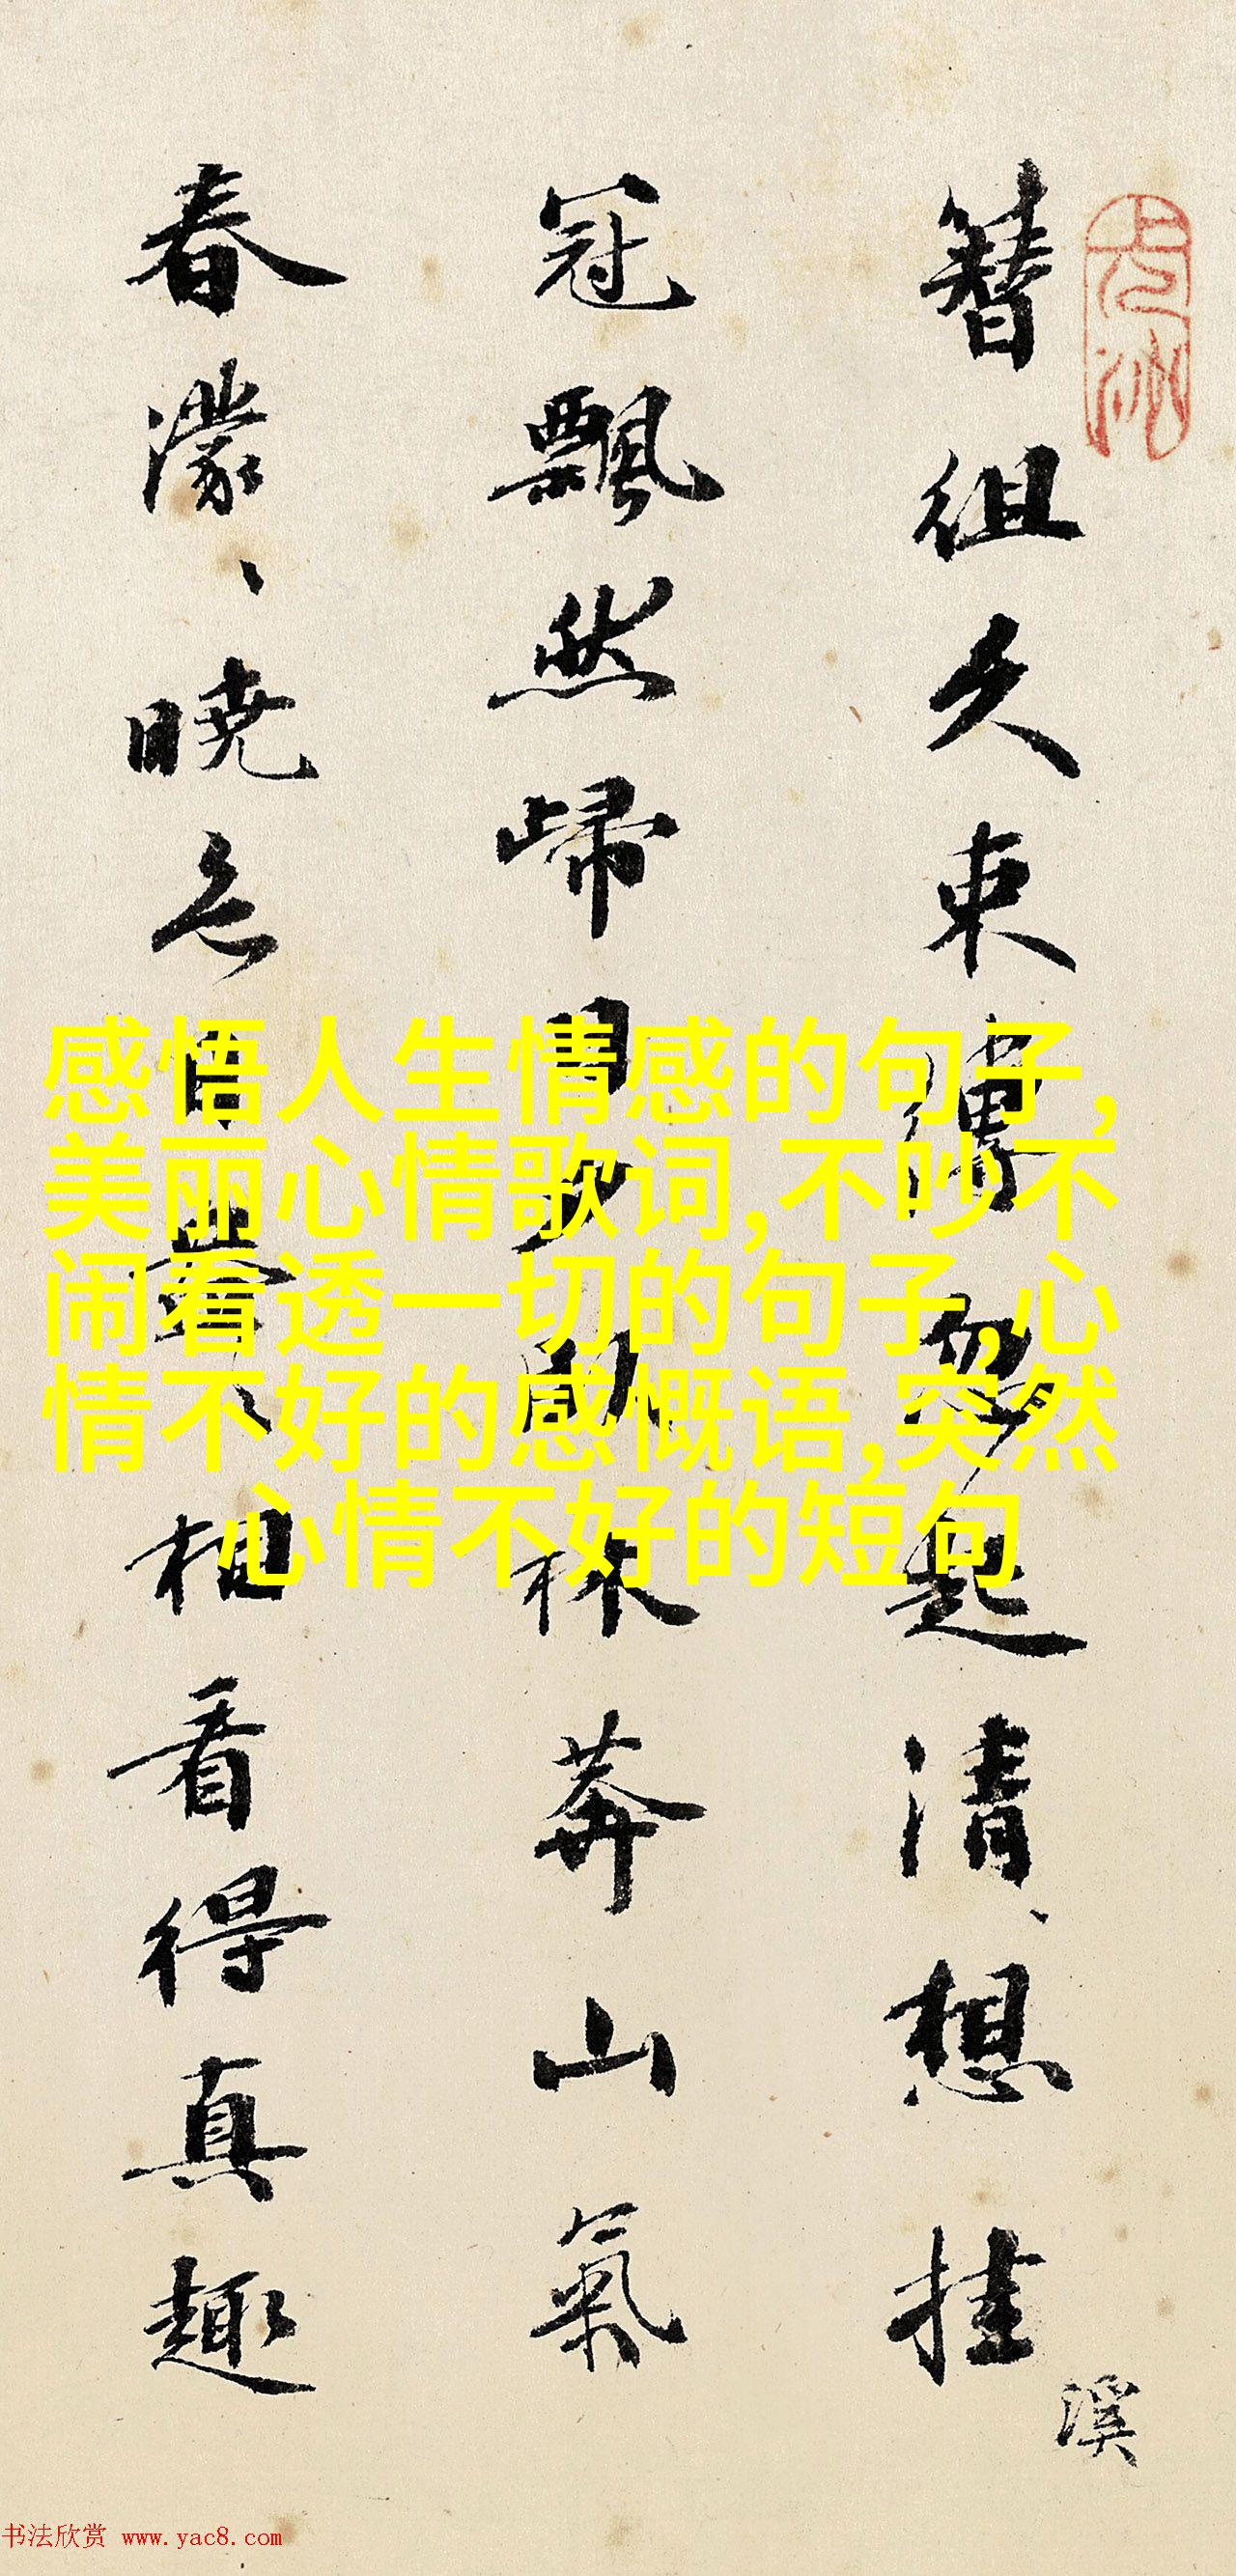 簪组久束缚忽起清想挂
冠飘然歸日多卧林莽山氣
春濛、晓色日興、相看得真趣
溪
感悟人生情感的句子,
美丽心情歌词,不吵不
闹看透一切的句子,心
情不好的感慨语,突然
心情不好的短句
书法欣赏 www.yac8.com